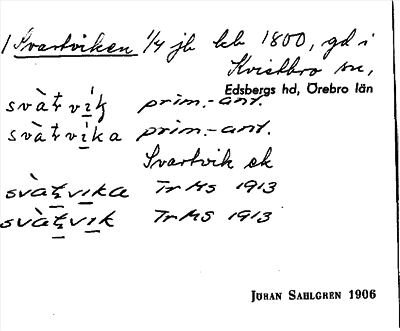 1 Svartviken 1/4 jb kb 1800, gd i
Kvistbro sn,
Edsbergs hd, Örebro län
svàt̨ vi̱k̨ prim.-ant.
svàt̨ vi̱ka prim.-ant.
Svartvik ek
svàt̨vi̱ka Tr MS 1913
svàt̨vi̱k Tr MS 1913
JOHAN SAHLGREN 1906